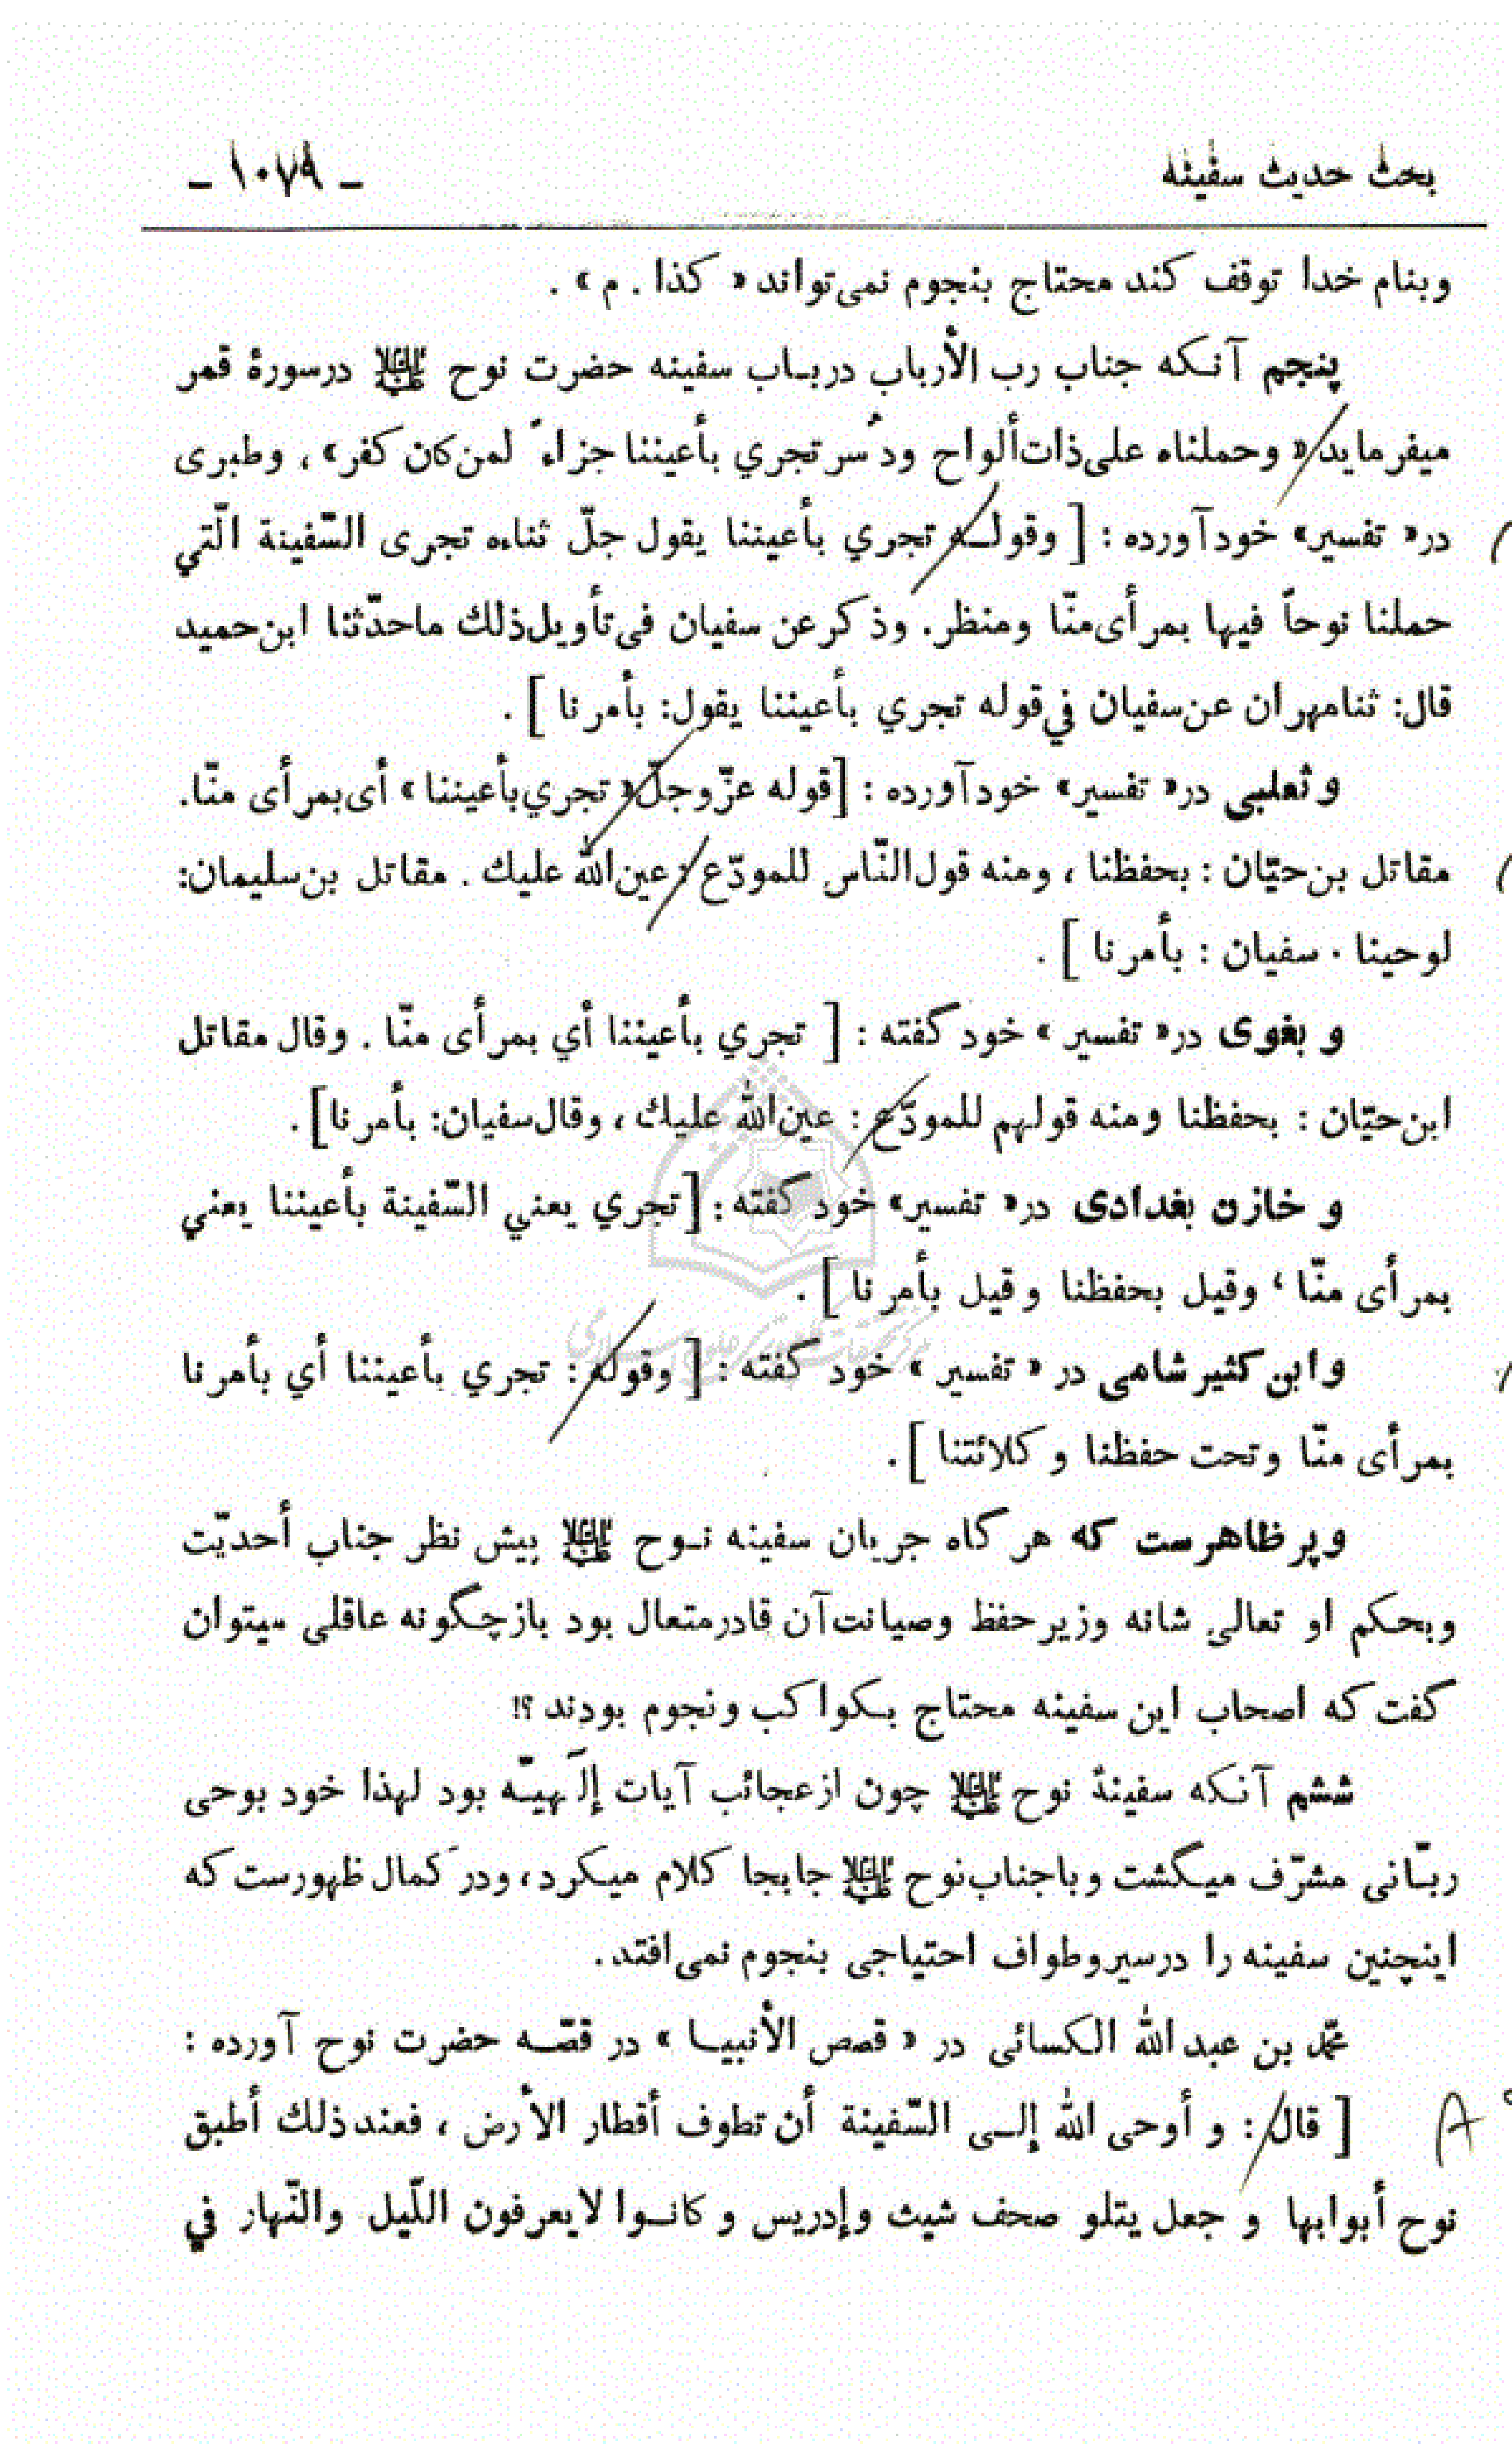 بحث حديث سفينه
- ١٠٧٩ -
وبنام خدا توقف كند محتاج بنجوم نمى‌تواند « كذا . م » .
پنجم آنـكه جناب رب الأرباب دربـاب سفينه حضرت نوح عليه‌السلام درسورهٔ قمر
ميفرمايد « وحملناه على‌ذات‌ألواح ودُسر تجري بأعيننا جزاءً لمن‌كان كفر» ، وطبرى
در « تفسير» خودآورده : [ وقولـه تجري بأعيننا يقول جلّ ثناءه تجرى السّفينة الّتي
حملنا نوحاً فيها بمرأى‌منّا ومنظر. وذكرعن سفيان فى‌تأويل‌ذلك ماحدّثنا ابن‌حميد
قال: ثنامهران عن‌سفيان في‌قوله تجري بأعيننا يقول: بأمرنا ] .
و ثعلبى در « تفسير» خودآورده : [قوله عزّوجلّ « تجري‌بأعيننا » أى‌بمرأى منّا.
مقاتل بن‌حيّان : بحفظنا ، ومنه قول‌النّاس للمودّع : عين‌الله عليك . مقاتل بن‌سليمان:
لوحينا . سفيان : بأمرنا ] .
و بغوى در « تفسير » خود گفته : [ تجري بأعيننا أي بمرأى منّا . وقال مقاتل
ابن‌حيّان : بحفظنا ومنه قولهم للمودّع : عين‌الله عليك ، وقال‌سفيان: بأمرنا] .
و خازن بغدادى در « تفسير» خود گفته : [تجري يعني السّفينة بأعيننا يعني
بمرأى منّا ، وقيل بحفظنا وقيل بأمرنا ] .
وابن كثيرشامى در « تفسير » خود گفته : [ وقوله : تجري بأعيننا أي بأمرنا
بمرأى منّا وتحت حفظنا وكلائتنا ] .
وپرظاهرست كه هرگاه جريان سفينه نـوح عليه‌السلام پيش نظر جناب أحديّت
وبحـكم او تعالى شانه وزيرحفظ وصيانت‌آن قادرمتعال بود بازچگونه عاقلى ميتوان
گفت كه اصحاب اين سفينه محتاج بـكواكب ونجوم بودند ؟!
ششم آنـكه سفينهٔ نوح عليه‌السلام چون ازعجائب آيات إلَهيـّه بود لهذا خود بوحى
ربـّانى مشرّف ميـگشت وباجناب‌نوح عليه‌السلام جابجا كلام ميـكرد ، ودركمال ظهورست كه
اينچنين سفينه را درسيروطواف احتياجى بنجوم نمى‌افتد.
محمّد بن عبدالله الكسائى در « قصص الأنبيـا » در قصّـه حضرت نوح آورده :
[ قال : و أوحى الله إلـى السّفينة أن تطوف أقطار الأرض ، فعندذلك أطبق
نوح أبوابها و جعل يتلو صحف شيث وإدريس و كانـوا لايعرفون اللّيل والنّهار في